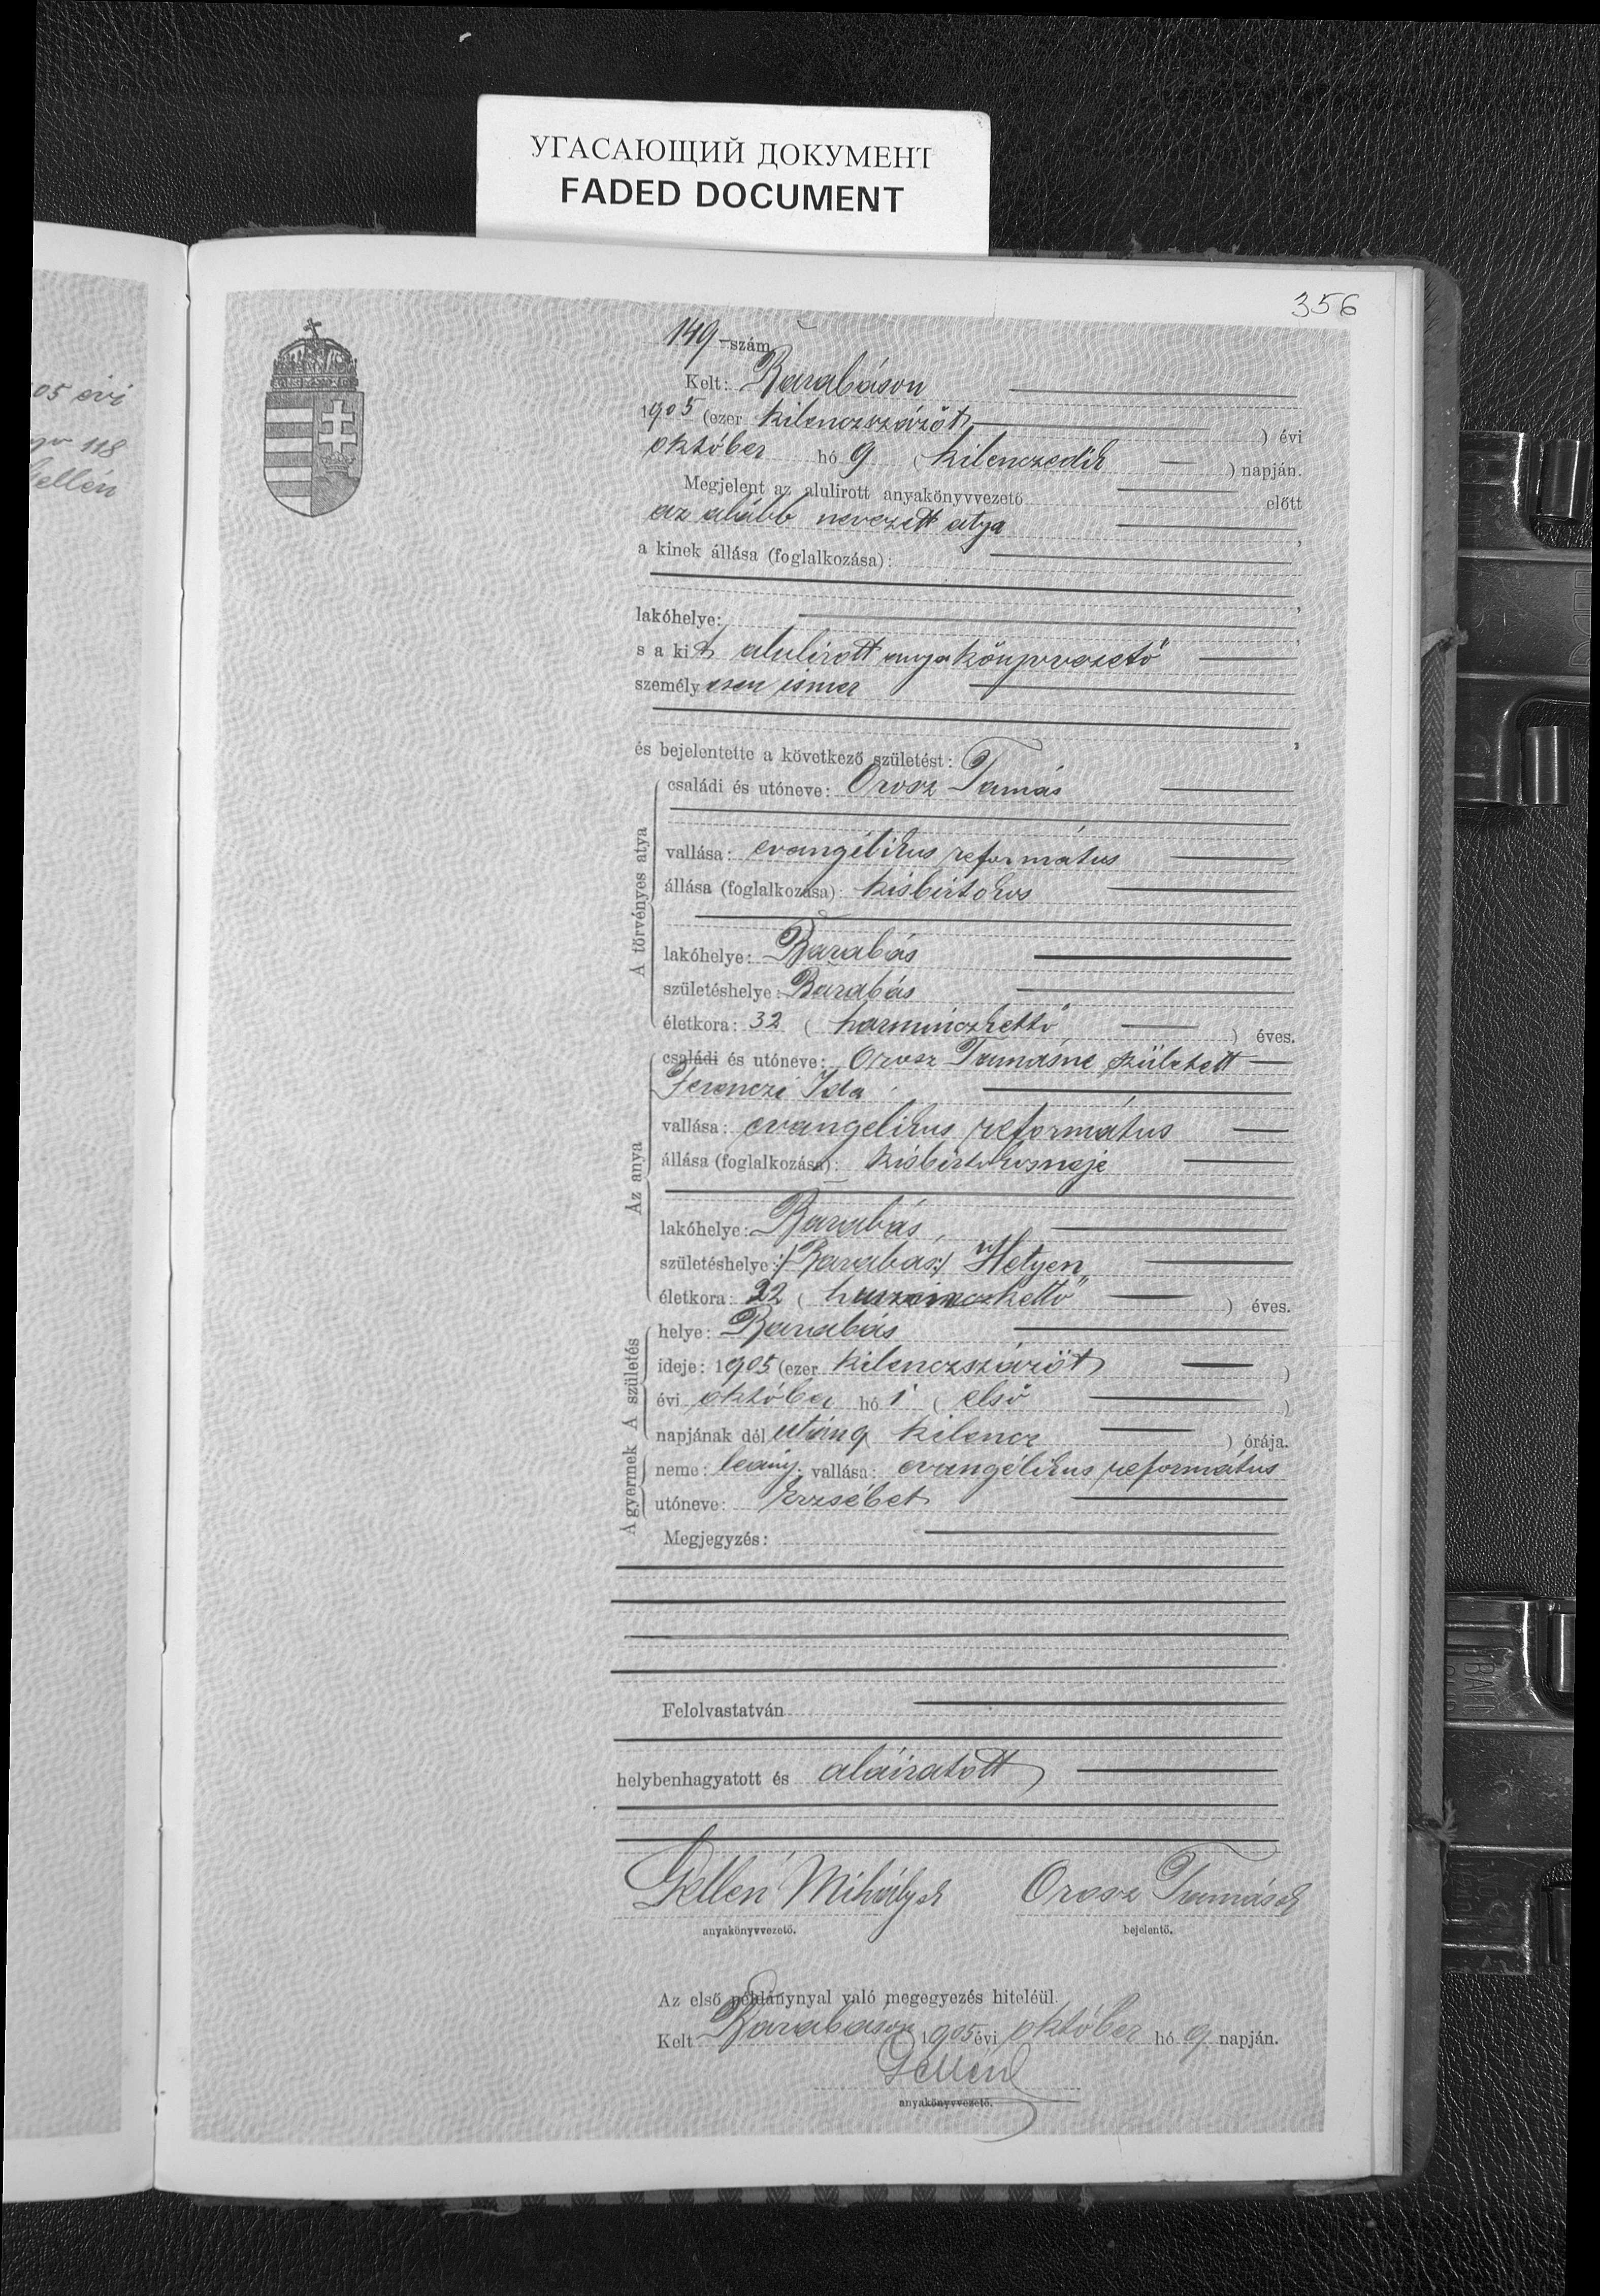 УГАСАЮЩИЙ ДОКУМЕНТ
FADED DOCUMENT
05 évi
118
Gellén
356
149 szám
Kelt: Barabáson
1905 (ezer kilenczszázöt) évi
október hó 9 (kilenczedik) napján.
Megjelent az alulirott anyakönyvvezető előtt
az alább nevezett atya,
a kinek állása (foglalkozása):
lakóhelye:
s a kit alulirott anyakönyvvezető
személyesen ismer
és bejelentette a következő születést:
A törvényes atya
családi és utóneve: Orosz Tamás
vallása: evangélikus református
állása (foglalkozása): kisbirtokos
lakóhelye: Barabás
születéshelye: Barabás
életkora: 32 (harminczkettő) éves.
Az anya
családi és utóneve: Orosz Tamásné született
Ferenczi Ida
vallása: evangelikus református
állása (foglalkozása): kisbirtokosneje
lakóhelye: Barabás,
születéshelye: /:Barabás:/ "Hetyen"
életkora: 22 ( ) éves.
A születés
helye: Barabás
ideje: 1905 (ezer kilenczszázöt)
évi október hó 1 (első)
napjának dél után 9 kilencz) órája.
A gyermek
neme: leány; vallása: evangélikus református
utóneve: Erzsébet
Megjegyzés:
Felolvastatván
helybenhagyatott és aláiratott
Gellén Mihály sk Orosz Tamás sk
anyakönyvvezető. bejelentő.
Az első példánynyal való megegyezés hiteléül.
Kelt Barabáson 1905 évi október hó 9 napján.
Gellén
anyakönyvvezető.